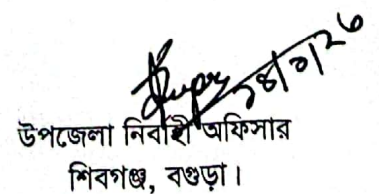 উপজেলা নির্বাহী অফিসার
শিবগঞ্জ, বগুড়া।